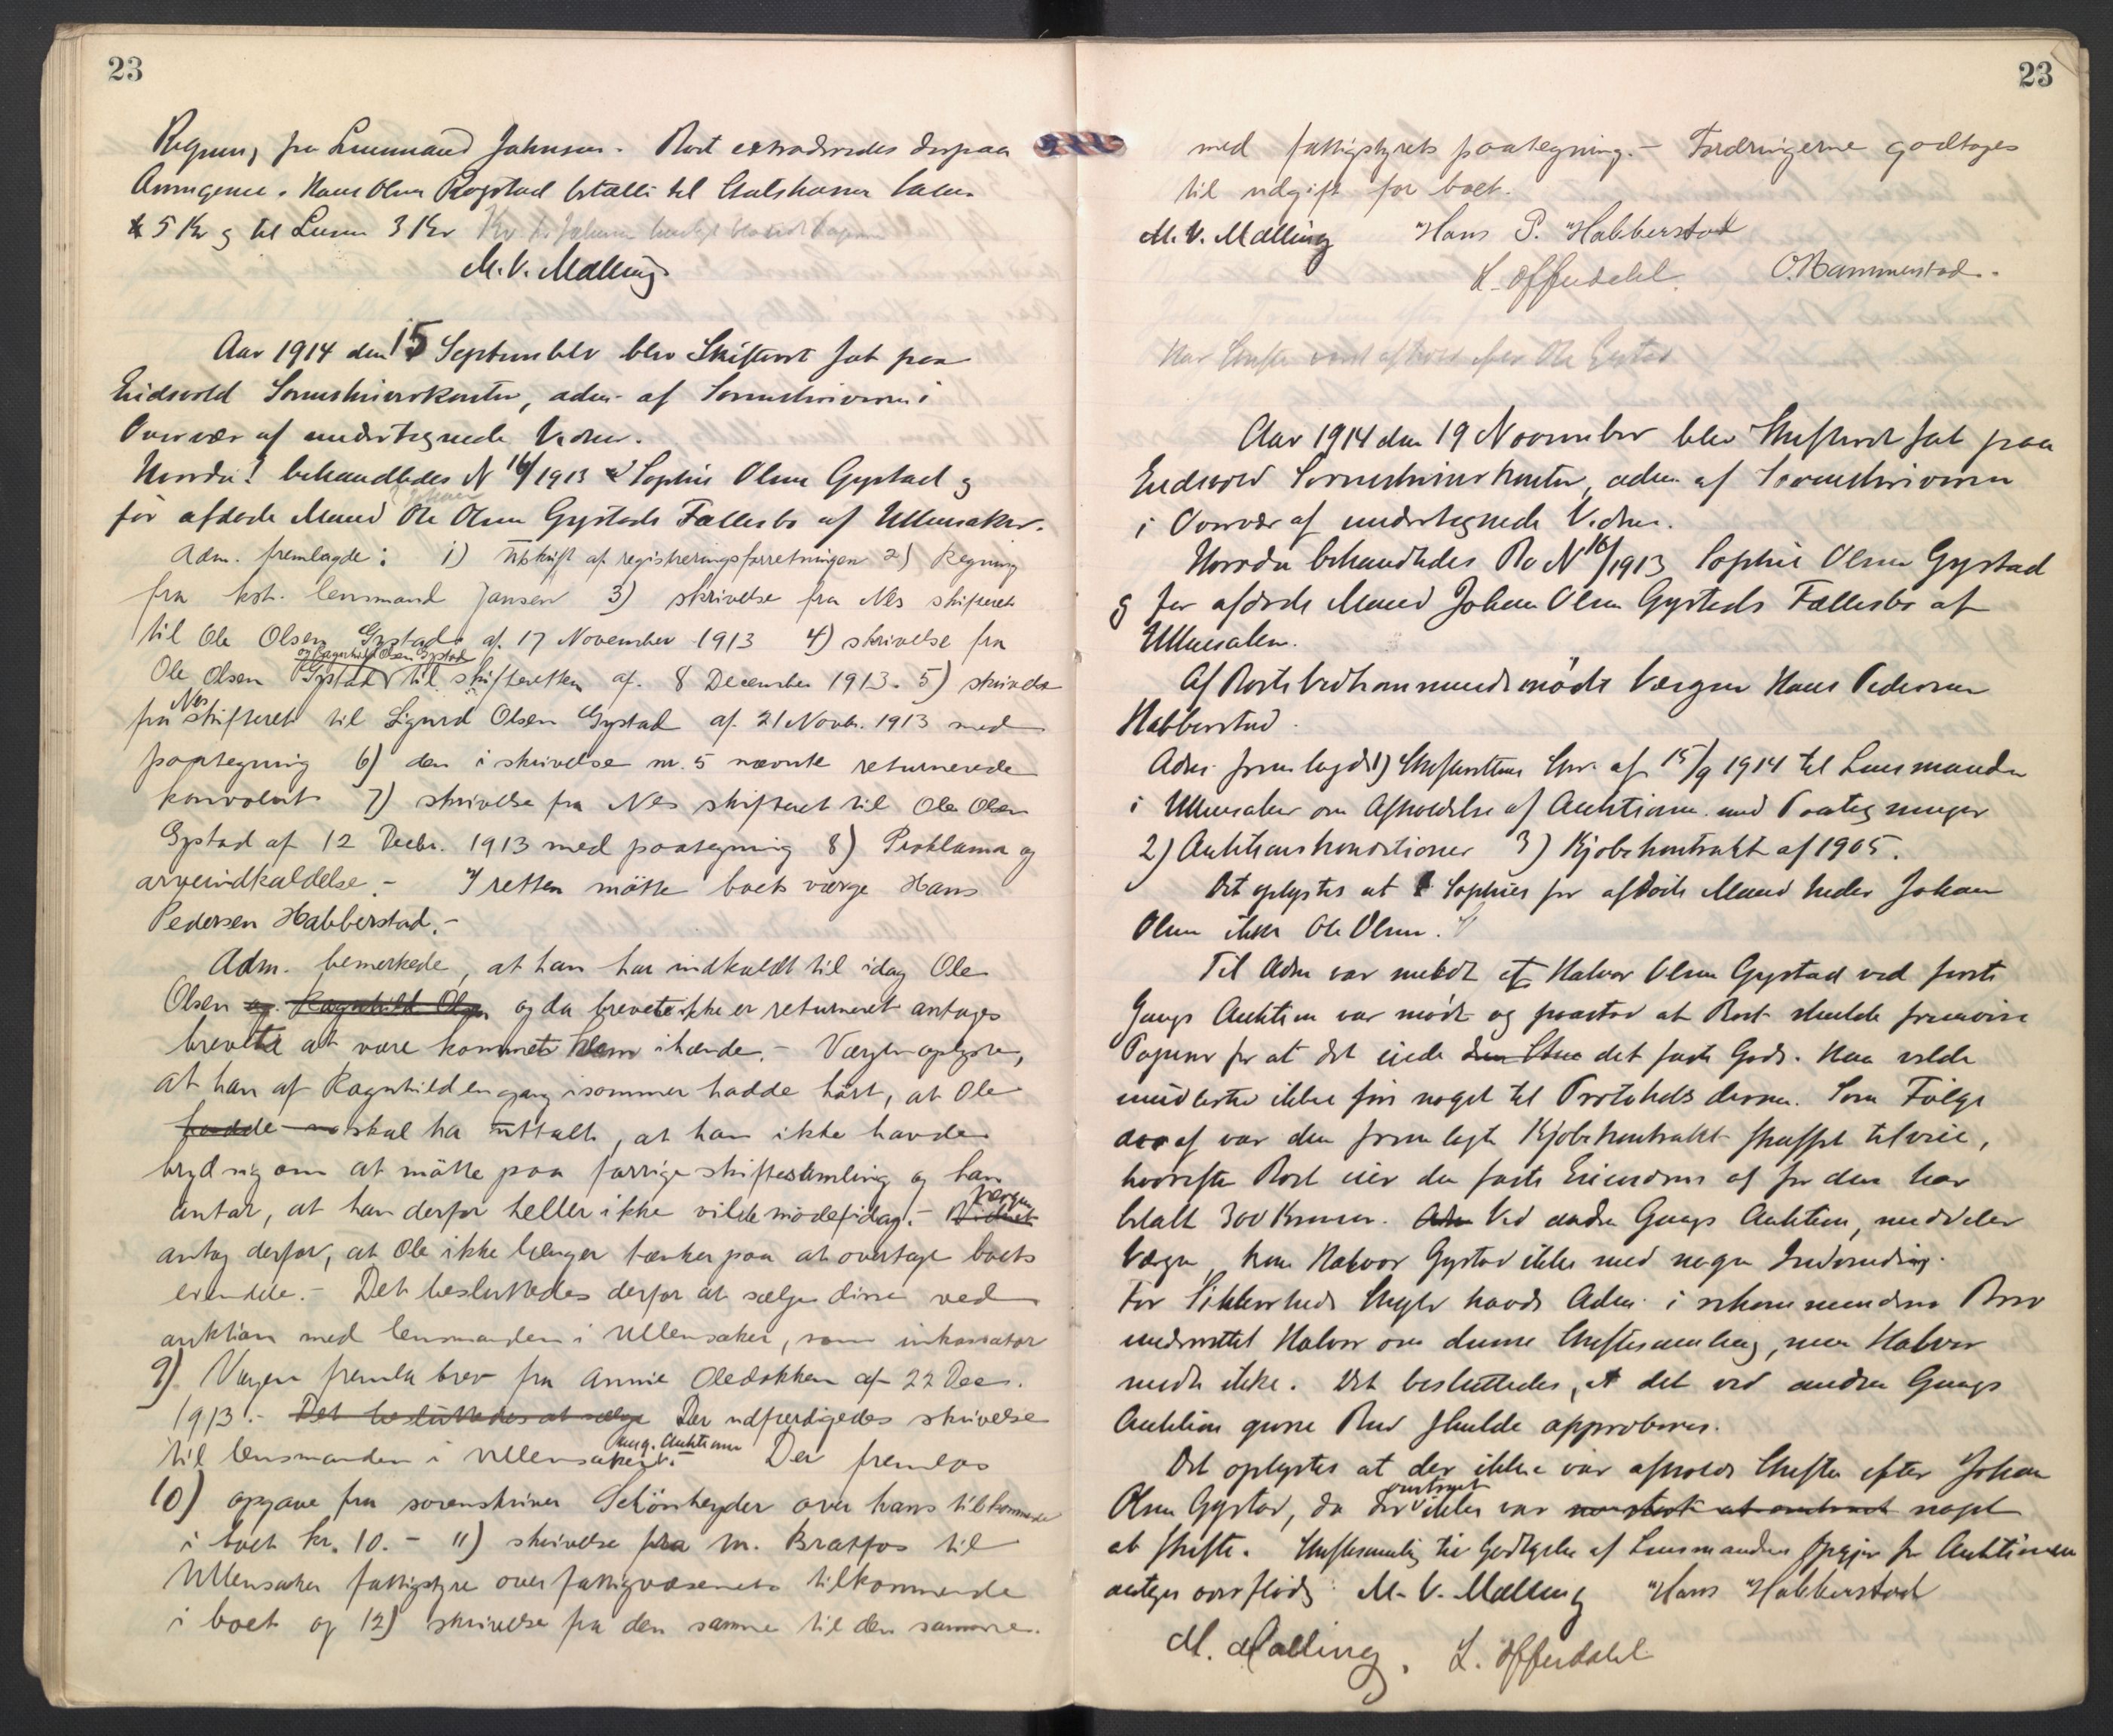 23
Regning fra Lensmand Johnsen. Boet extraderedes derpaa
Arvingerne. Hans Olsen Rogstad betalte til Statskassen
5 Kr og til Lensm 3 Kr
M. V. Mælling
Aar 1914 den 15 September blev Skifteret sat paa
Eidsvold Sorenskriverkontor, adm. af Sorenskriveren i
Overvær af undertegnede Vidner.
Hvorda: behandledes N 16/1913 Sophie Olsen Gystad og
før afdøde Mand Johan Ole Olsen Gystads Fællesbo af Ullensaker.
Adm. fremlagde: 1) Utskrift af registreringsforretningen 2) Regning
fra kst. lensmand Jansen 3) skrivelse fra Nes skifteret
til Ole Olsen Gystad af 17 November 1913 4) skrivelse fra
og Ragnhild Olsen Gystad
Ole Olsen Gystad til skifteretten af 8 December 1913. 5) skrivelse
fra Nes skifteret til Sigurd Olsen Gystad af 21 Novbr. 1913 med
paategning 6) den i skrivelse nr. 5 nævnte returnerede
konvolut 7) skrivelse fra Nes skifteret til Ole Olsen
Gystad af 12 Decbr. 1913 med paategning 8) Proklama og
arveindkaldelse. - I retten møtte boets værge Hans
Pedersen Habberstad. -
Adm. bemerkede, at han har indkaldt til idag Ole
Olsen og Ragnhild Olsen og da brevet ikke er returneret antages
brevet at være kommet ham ihænde. - Værgen oplyste,
at han af Ragnhild engang isommer hadde hørt, at Ole
hadde skal ha uttalt, at han ikke havde
bryd sig om at møtte paa forrige skiftesamling og han
antar, at han derfor heller ikke vilde møde idag. - Vidnet Værgen
antog derfor, at Ole ikke længer tænker paa at overtage boets
eiendele. - Det besluttedes derfor at sælge disse ved
auktion med lensmanden i Ullensaker, som inkassator
9) Værgen fremla brev fra Annie Oledokken af 22 Dec.
1913. - Det besluttedes at sælge Der udfærdigedes skrivelse
til lensmanden i Ullensaker ang. Auktionen. - Der fremlaas
10) opgave fra sorenskriver Schönheyder over hans tilkommende
i boet kr. 10. - 11) skrivelse fra M. Bratfos til
Ullensaker fattigstyre over fattigvæsenets tilkommende
i boet og 12) skrivelse fra den samme til den samme.
23
med fattigstyrets paategning. - Fordringerne godtages
til udgift for boet.
M. V. Mælling Hans P. Habberstad
L. Offerdahl O. Hammerstad.
Har Skifte vært afholdt efter Ole Gystad
Aar 1914 den 19 November blev Skifteret sat paa
Eidsvold Sorenskriverkontor, adm. af Sorenskriveren
i Overvær af undertegnede Vidner.
Hvorda behandledes Bo N 16/1913 Sophie Olsen Gystad
og før afdøde Mand Johan Olsen Gystads Fællesbo af
Ullensaker.
Af Boets Vedkommende mødte Værgen Hans Pedersen
Habberstad.
Adm. fremlagde 1) Skifterettens Skr. af 15/9 1914 til Lensmanden
i Ullensaker om Afholdelse af Auktionen med Paategninger
2) Auktionskonditioner 3) Kjøbekontrakt af 1905.
Det oplystes at Sophies før afdøde Mand heder Johan
Olsen ikke Ole Olsen.
Til Adm var meldt at Halvor Olsen Gystad ved første
Gangs Auktion var mødt og paastod at Boet skulde fremvise
Papirer for at det eiede det faste Gods. Han vilde
imidlertid ikke føre noget til Protokols derom. Som Følge
deraf var den fremlagte Kjøbekontrakt skaffet tilveie,
hvorefter Boet eier den faste Eiendom og for den har
betalt 300 Kroner. Adm Ved anden Gangs Auktion, meddeler
Værgen, kom Halvor Gystad ikke med nogen Indvending.
For Sikkerheds Skyld havde Adm. i rekommenderet Brev
underrettet Halvor om denne Skiftesamling, men Halvor
mødte ikke. Det besluttedes, at det ved anden Gangs
Auktion gjorte Bud skulde approberes.
Det oplystes at der ikke var afholdt Skifte efter Johan
Olsen Gystad, da der ikke var noget
at skifte. Skiftesamling til Godtagelse af Lensmandens Opgjør for Auktionen
antages overflødig. M. V. Mælling Hans Habberstad
M. Mælling. L. Offerdahl